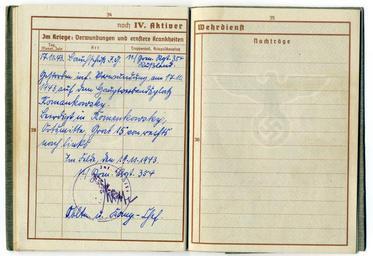 34
noch IV. Aktiver
Im Kriege: Verwundungen und ernstere Krankheiten
Tag, Monat, Jahr
Art
Truppenteil, Kriegslazarett
17.11.43. Bauchschuß I.G. 11/Gren. Regt. 354
Rußland
Gestorben inf. Verwundung am 17.11.
1943 auf dem Hauptverbandplatz
Romankowsky.
Beerdigt in Romankowsky,
Ostmitte, Grab 15 von rechts
nach links
Im Felde, den 19.11.1943.
11/Gren. Regt. 354
35
Wehrdienst
Nachträge